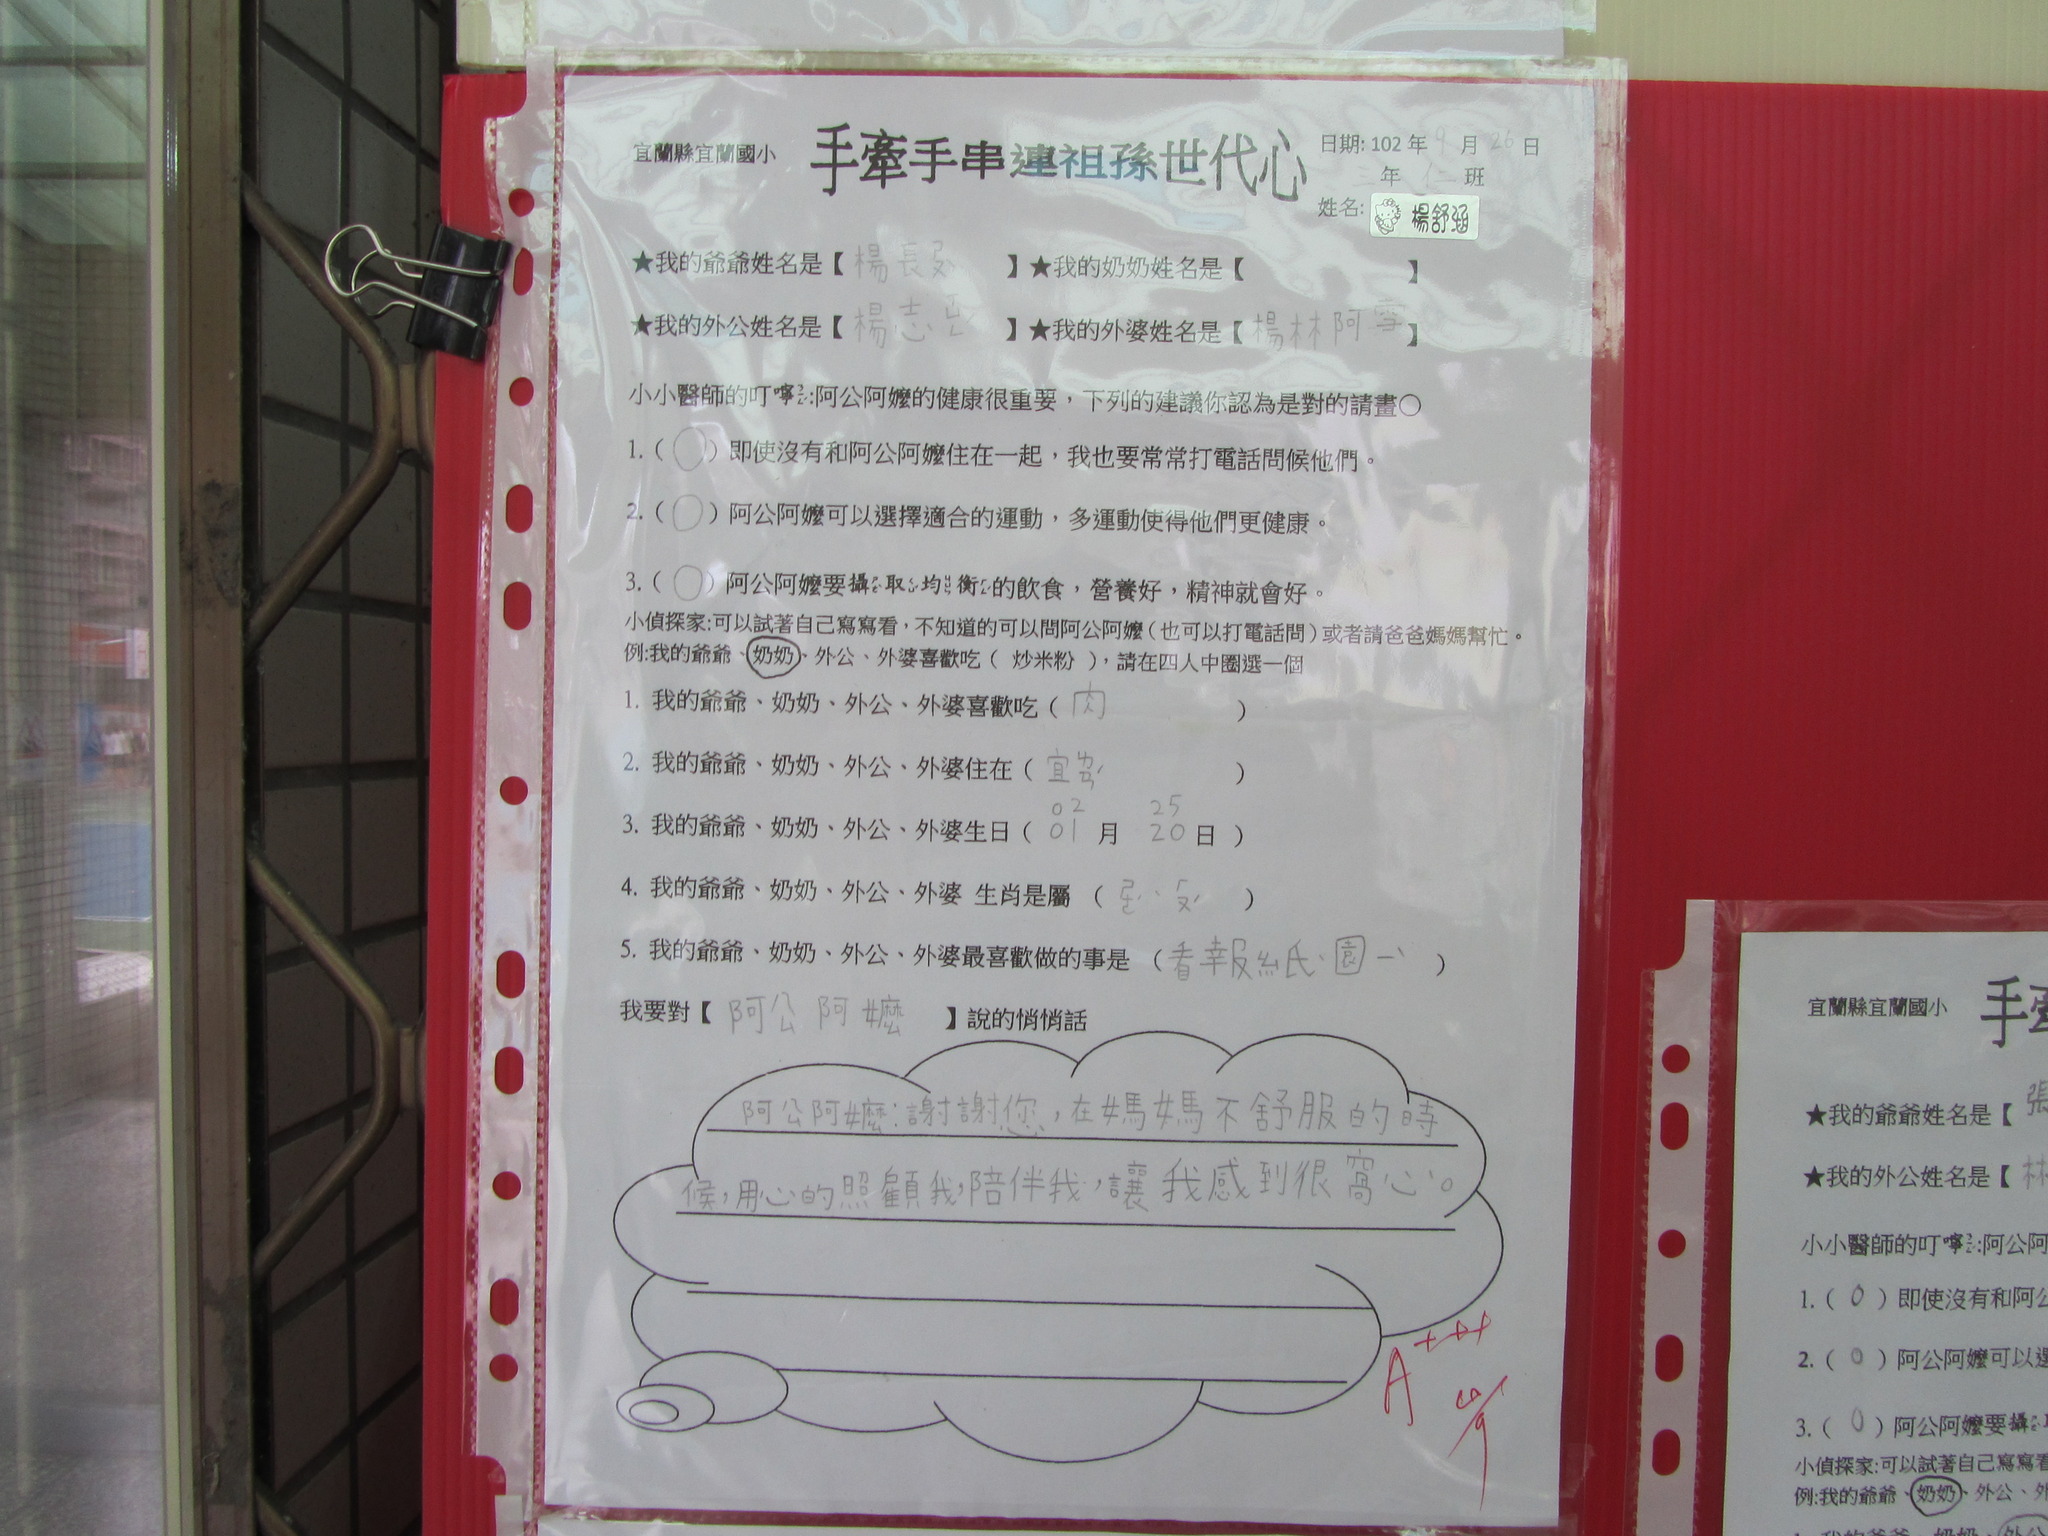 宜蘭縣宜蘭國小
手牽手串連祖孫世代心
日期: 102 年 9 月 26 日
三年 仁 班
姓名: 楊舒涵
★我的爺爺姓名是【 楊長 】★我的奶奶姓名是【 】
★我的外公姓名是【 楊志 】★我的外婆姓名是【 楊林阿雪 】
小小醫師的叮嚀:阿公阿嬤的健康很重要，下列的建議你認為是對的請畫○
1.（ ○ ）即使沒有和阿公阿嬤住在一起，我也要常常打電話問候他們。
2.（ ○ ）阿公阿嬤可以選擇適合的運動，多運動使得他們更健康。
3.（ ○ ）阿公阿嬤要攝取均衡的飲食，營養好，精神就會好。
小偵探家:可以試著自己寫寫看，不知道的可以問阿公阿嬤（也可以打電話問）或者請爸爸媽媽幫忙。
例:我的爺爺、奶奶、外公、外婆喜歡吃（ 炒米粉 ），請在四人中圈選一個
1. 我的爺爺、奶奶、外公、外婆喜歡吃（ 肉 ）
2. 我的爺爺、奶奶、外公、外婆住在（ 宜ㄌㄢˊ ）
02 25
3. 我的爺爺、奶奶、外公、外婆生日（ 01 月 20 日 ）
4. 我的爺爺、奶奶、外公、外婆 生肖是屬 （ ）
5. 我的爺爺、奶奶、外公、外婆最喜歡做的事是 （看報紙、園一ˋ ）
我要對【 阿公阿嬤 】說的悄悄話
阿公阿嬤:謝謝您，在媽媽不舒服的時
候，用心的照顧我，陪伴我，讓我感到很窩心。
A+++
宜蘭縣宜蘭國小
手牽
★我的爺爺姓名是【 張
★我的外公姓名是【 林
小小醫師的叮嚀:阿公阿
1.（ 0 ）即使沒有和阿公
2.（ 0 ）阿公阿嬤可以選
3.（ 0 ）阿公阿嬤要攝取
小偵探家:可以試著自己寫寫看
例:我的爺爺、奶奶、外公、外